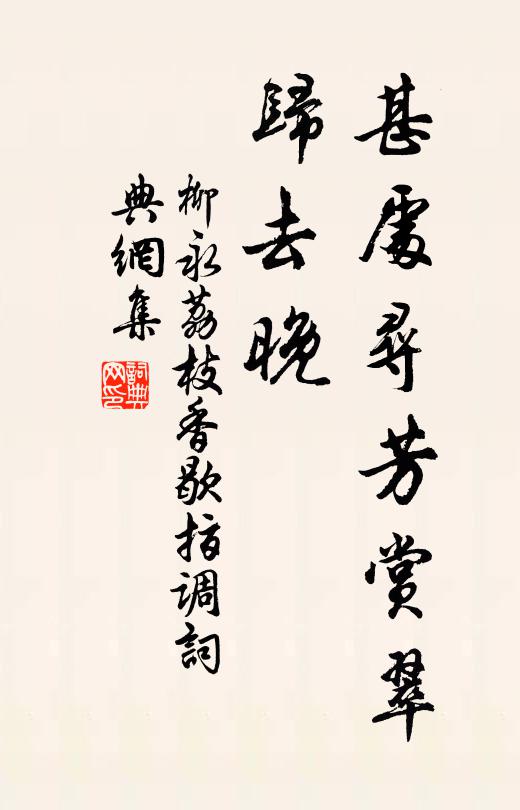 甚處尋芳賞翠
歸去晚
柳永荔枝香歇指調詞
典網集
詞典
网印